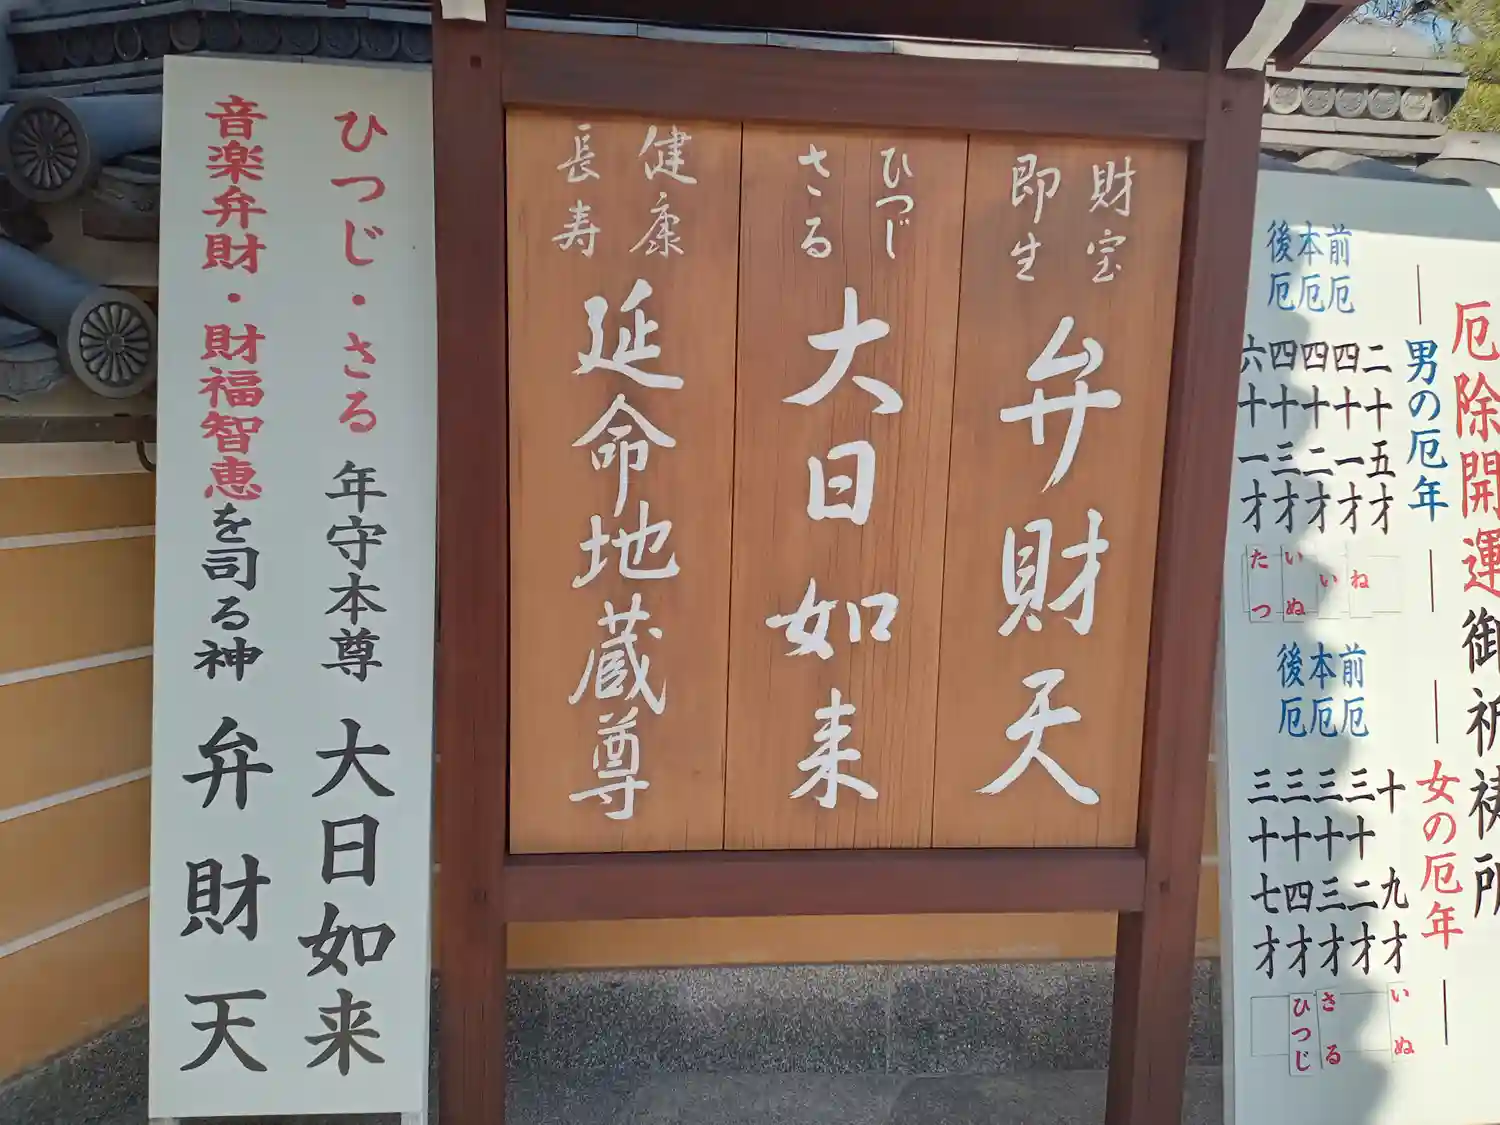 厄除開運御祈祷所
―男の厄年―
―女の厄年―
前厄
本厄
後厄
二十五才
四十一才 ね
四十二才 い
四十三才 いぬ
六十一才 たつ
前厄
本厄
後厄
十九才 いぬ
三十二才
三十三才 さる
三十四才 ひつじ
三十七才
財宝
即生
弁財天
ひつじ
さる
大日如来
健康
長寿
延命地蔵尊
ひつじ・さる 年守本尊 大日如来
音楽弁財・財福智恵を司る神 弁財天